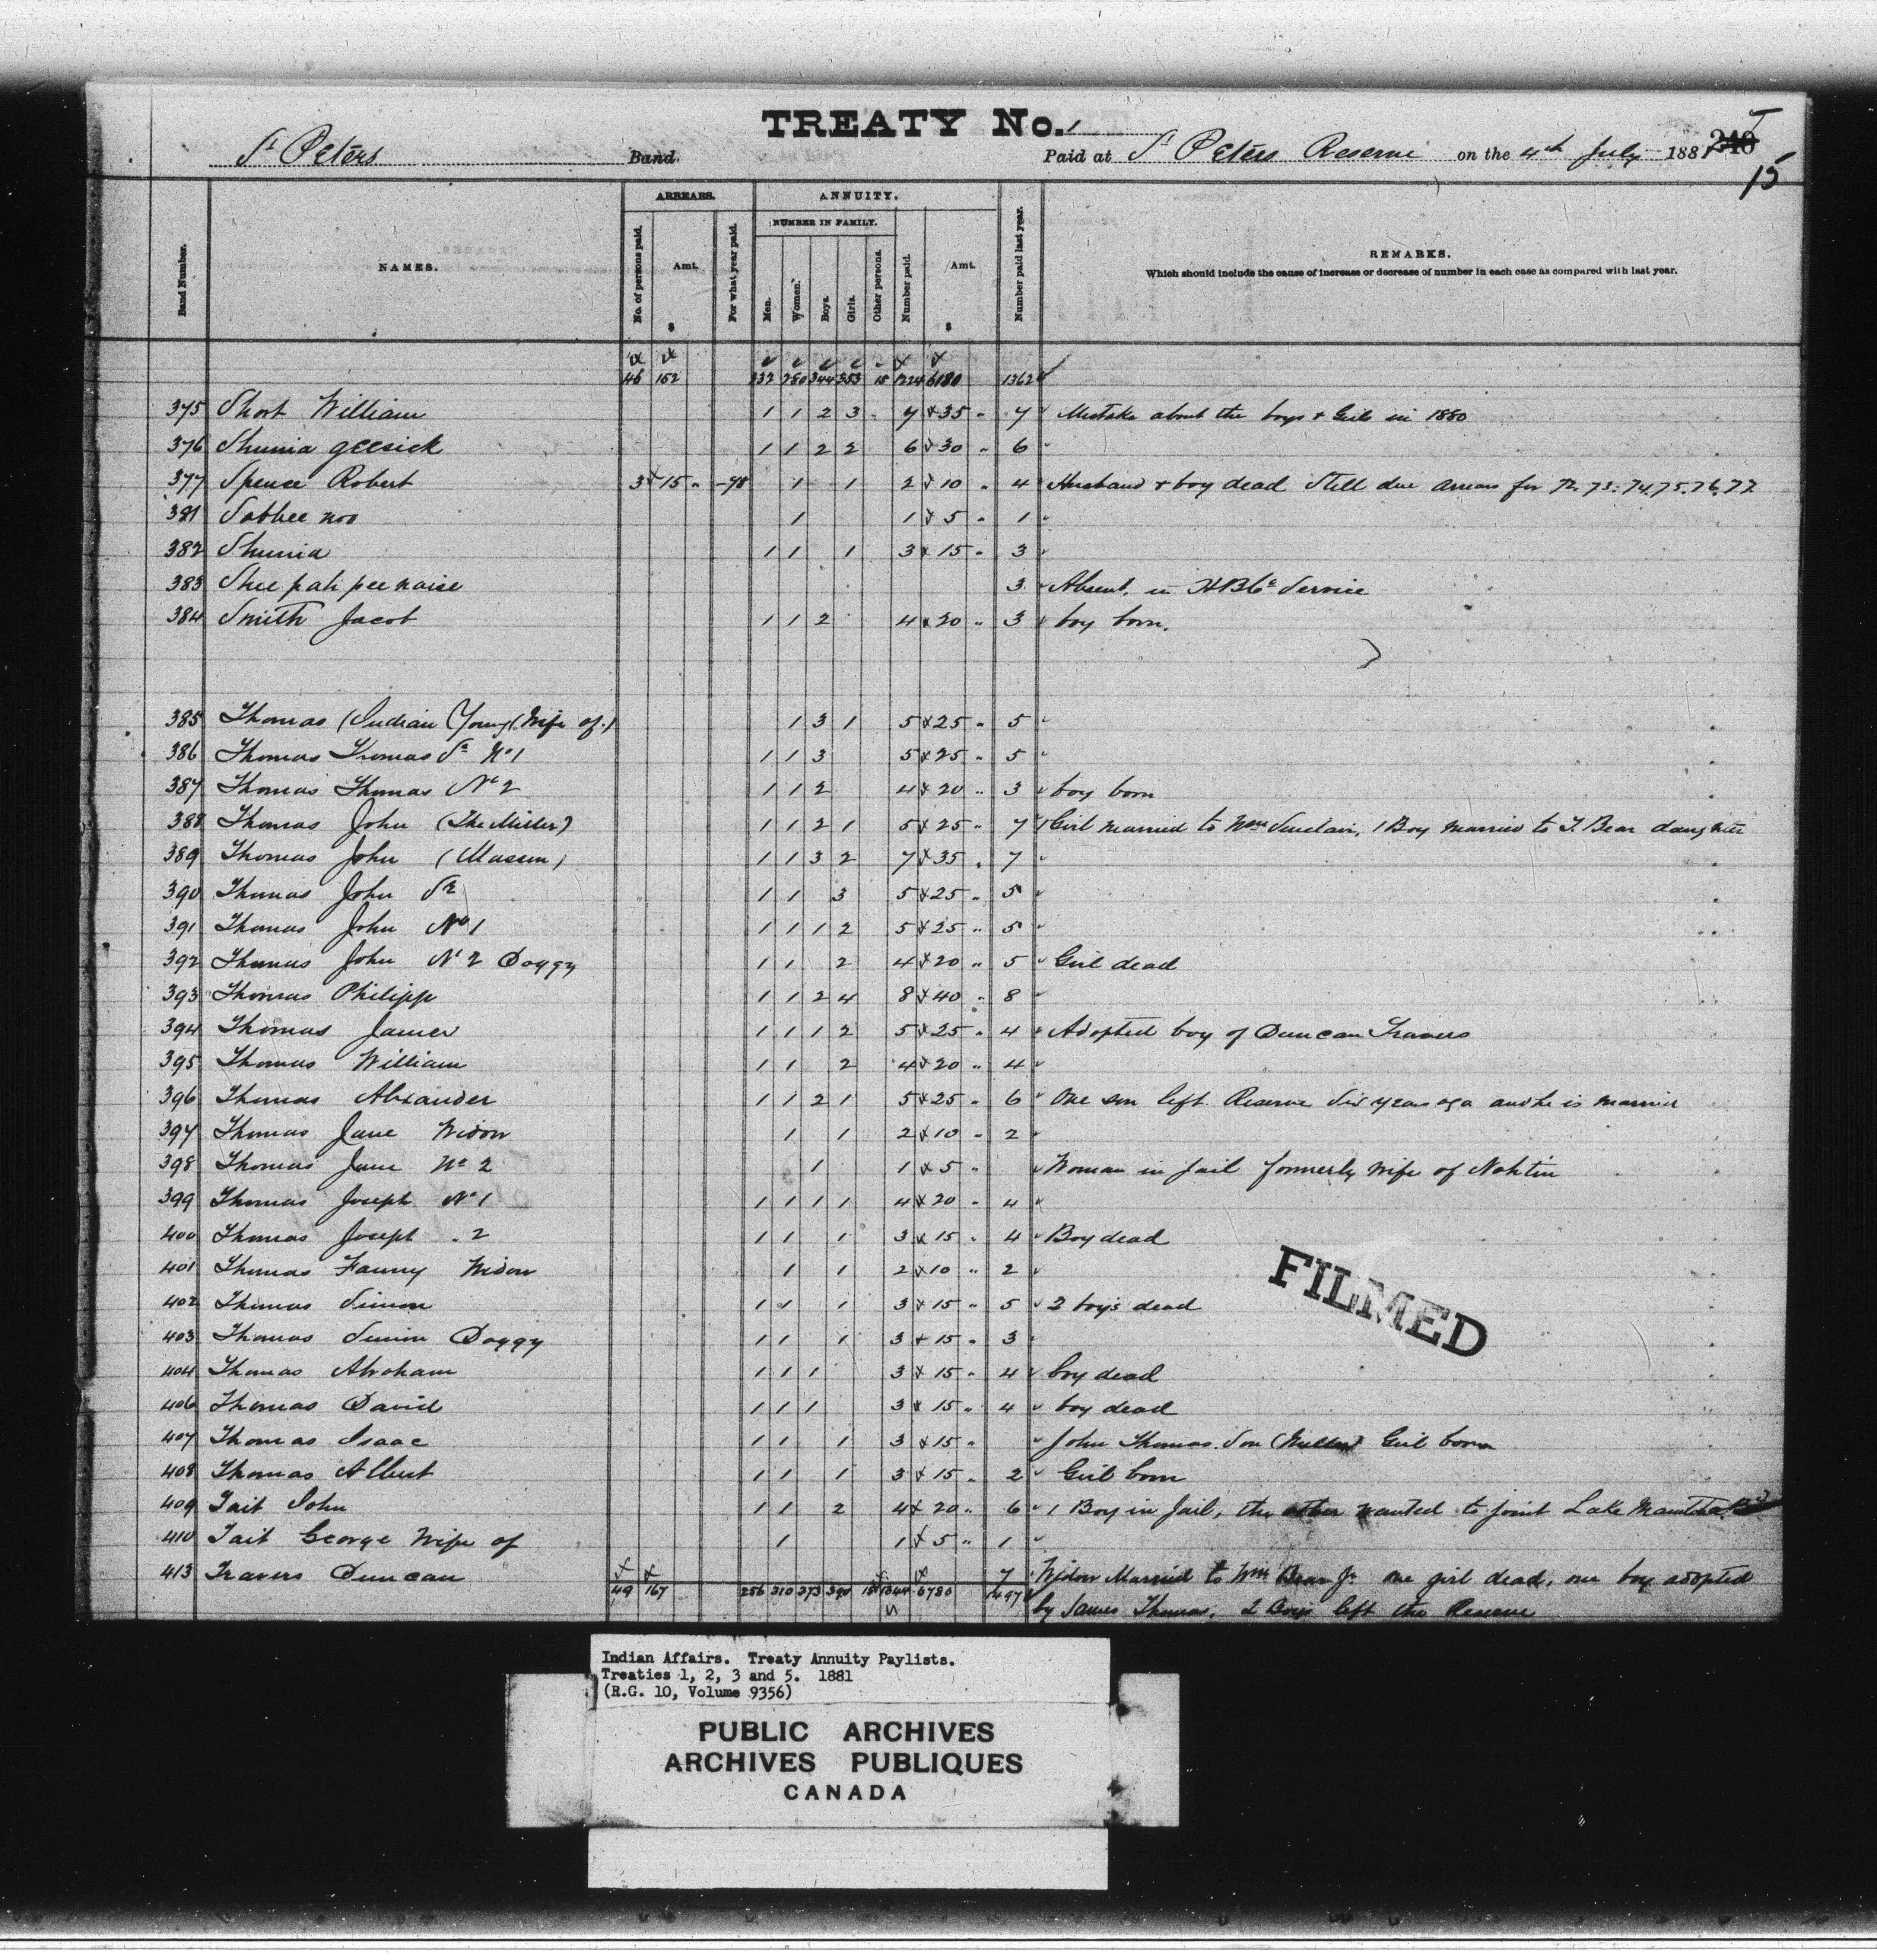 TREATY No. 1
St Peters Band. Paid at St Peters Reserve on the 4th July 1881 240
15
ARREARS. ANNUITY.
NUMBER IN FAMILY.
Band Number. NAMES. No. of persons paid. Amt. $ For what year paid. Men. Women. Boys. Girls. Other persons. Number paid. Amt. $ Number paid last year. REMARKS.
Which should include the cause of increase or decrease of number in each case as compared with last year.
46 152 232 280 344 353 15 1224 6180 1362
375 Short William 1 1 2 3 7 35 7 Mistake about the boys & Girls in 1880
376 Shunia geesick 1 1 2 2 6 30 6
377 Spence Robert 3 15 -78 1 1 2 10 4 Husband & boy dead Still due arrears for 72. 73. 74. 75. 76. 77
381 Sabbee noo 1 1 5 1
382 Shunia 1 1 1 3 15 3
383 Shee pah pee naise 3 Absent, in H B Co Service
384 Smith Jacob 1 1 2 4 20 3 boy born.
385 Thomas (Indian Young (Wife of) 1 3 1 5 25 5
386 Thomas Thomas Sr No 1 1 1 3 5 25 5
387 Thomas Thomas No 2 1 1 2 4 20 3 boy born
388 Thomas John (The Miller) 1 1 2 1 5 25 7 1 Girl married to Wm Sinclair, 1 Boy married to T. Bear daughter
389 Thomas John (Mason) 1 1 3 2 7 35 7
390 Thomas John Sr 1 1 3 5 25 5
391 Thomas John No 1 1 1 1 2 5 25 5
392 Thomas John No 2 Doggy 1 1 2 4 20 5 Girl dead
393 Thomas Philipp 1 1 2 4 8 40 8
394 Thomas James 1 1 1 2 5 25 4 Adopted boy of Duncan Travers
395 Thomas William 1 1 2 4 20 4
396 Thomas Alexander 1 1 2 1 5 25 6 One son left Reserve Six years ago and he is married
397 Thomas Jane Widow 1 1 2 10 2
398 Thomas Jane No 2 1 1 5 Woman in Jail formerly wife of Nahtin
399 Thomas Joseph No 1 1 1 1 1 4 20 4
400 Thomas Joseph . 2 1 1 1 3 15 4 Boy dead
401 Thomas Fanny Widow 1 1 2 10 2
402 Thomas Simon 1 1 1 3 15 5 2 boys dead
FILMED
403 Thomas Simon Doggy 1 1 1 3 15 3
404 Thomas Abraham 1 1 1 3 15 4 boy dead
406 Thomas David 1 1 1 3 15 4 boy dead
407 Thomas Isaac 1 1 1 3 15 John Thomas Son (Miller) Girl born
408 Thomas Albert 1 1 1 3 15 2 Girl born
409 Tait John 1 1 2 4 20 6 1 Boy in Jail, the other wanted to joint Lake Manitoba Bd
410 Tait George Wife of 1 1 5 1
413 Travers Duncan 7 Widow Married to Wm Bear Jr one girl dead, one boy adopted
49 167 256 310 373 390 15 1344 6780 1497 by James Thomas, 2 Boys left the Reserve
Indian Affairs. Treaty Annuity Paylists.
Treaties 1, 2, 3 and 5. 1881
(R.G. 10, Volume 9356)
PUBLIC ARCHIVES
ARCHIVES PUBLIQUES
CANADA